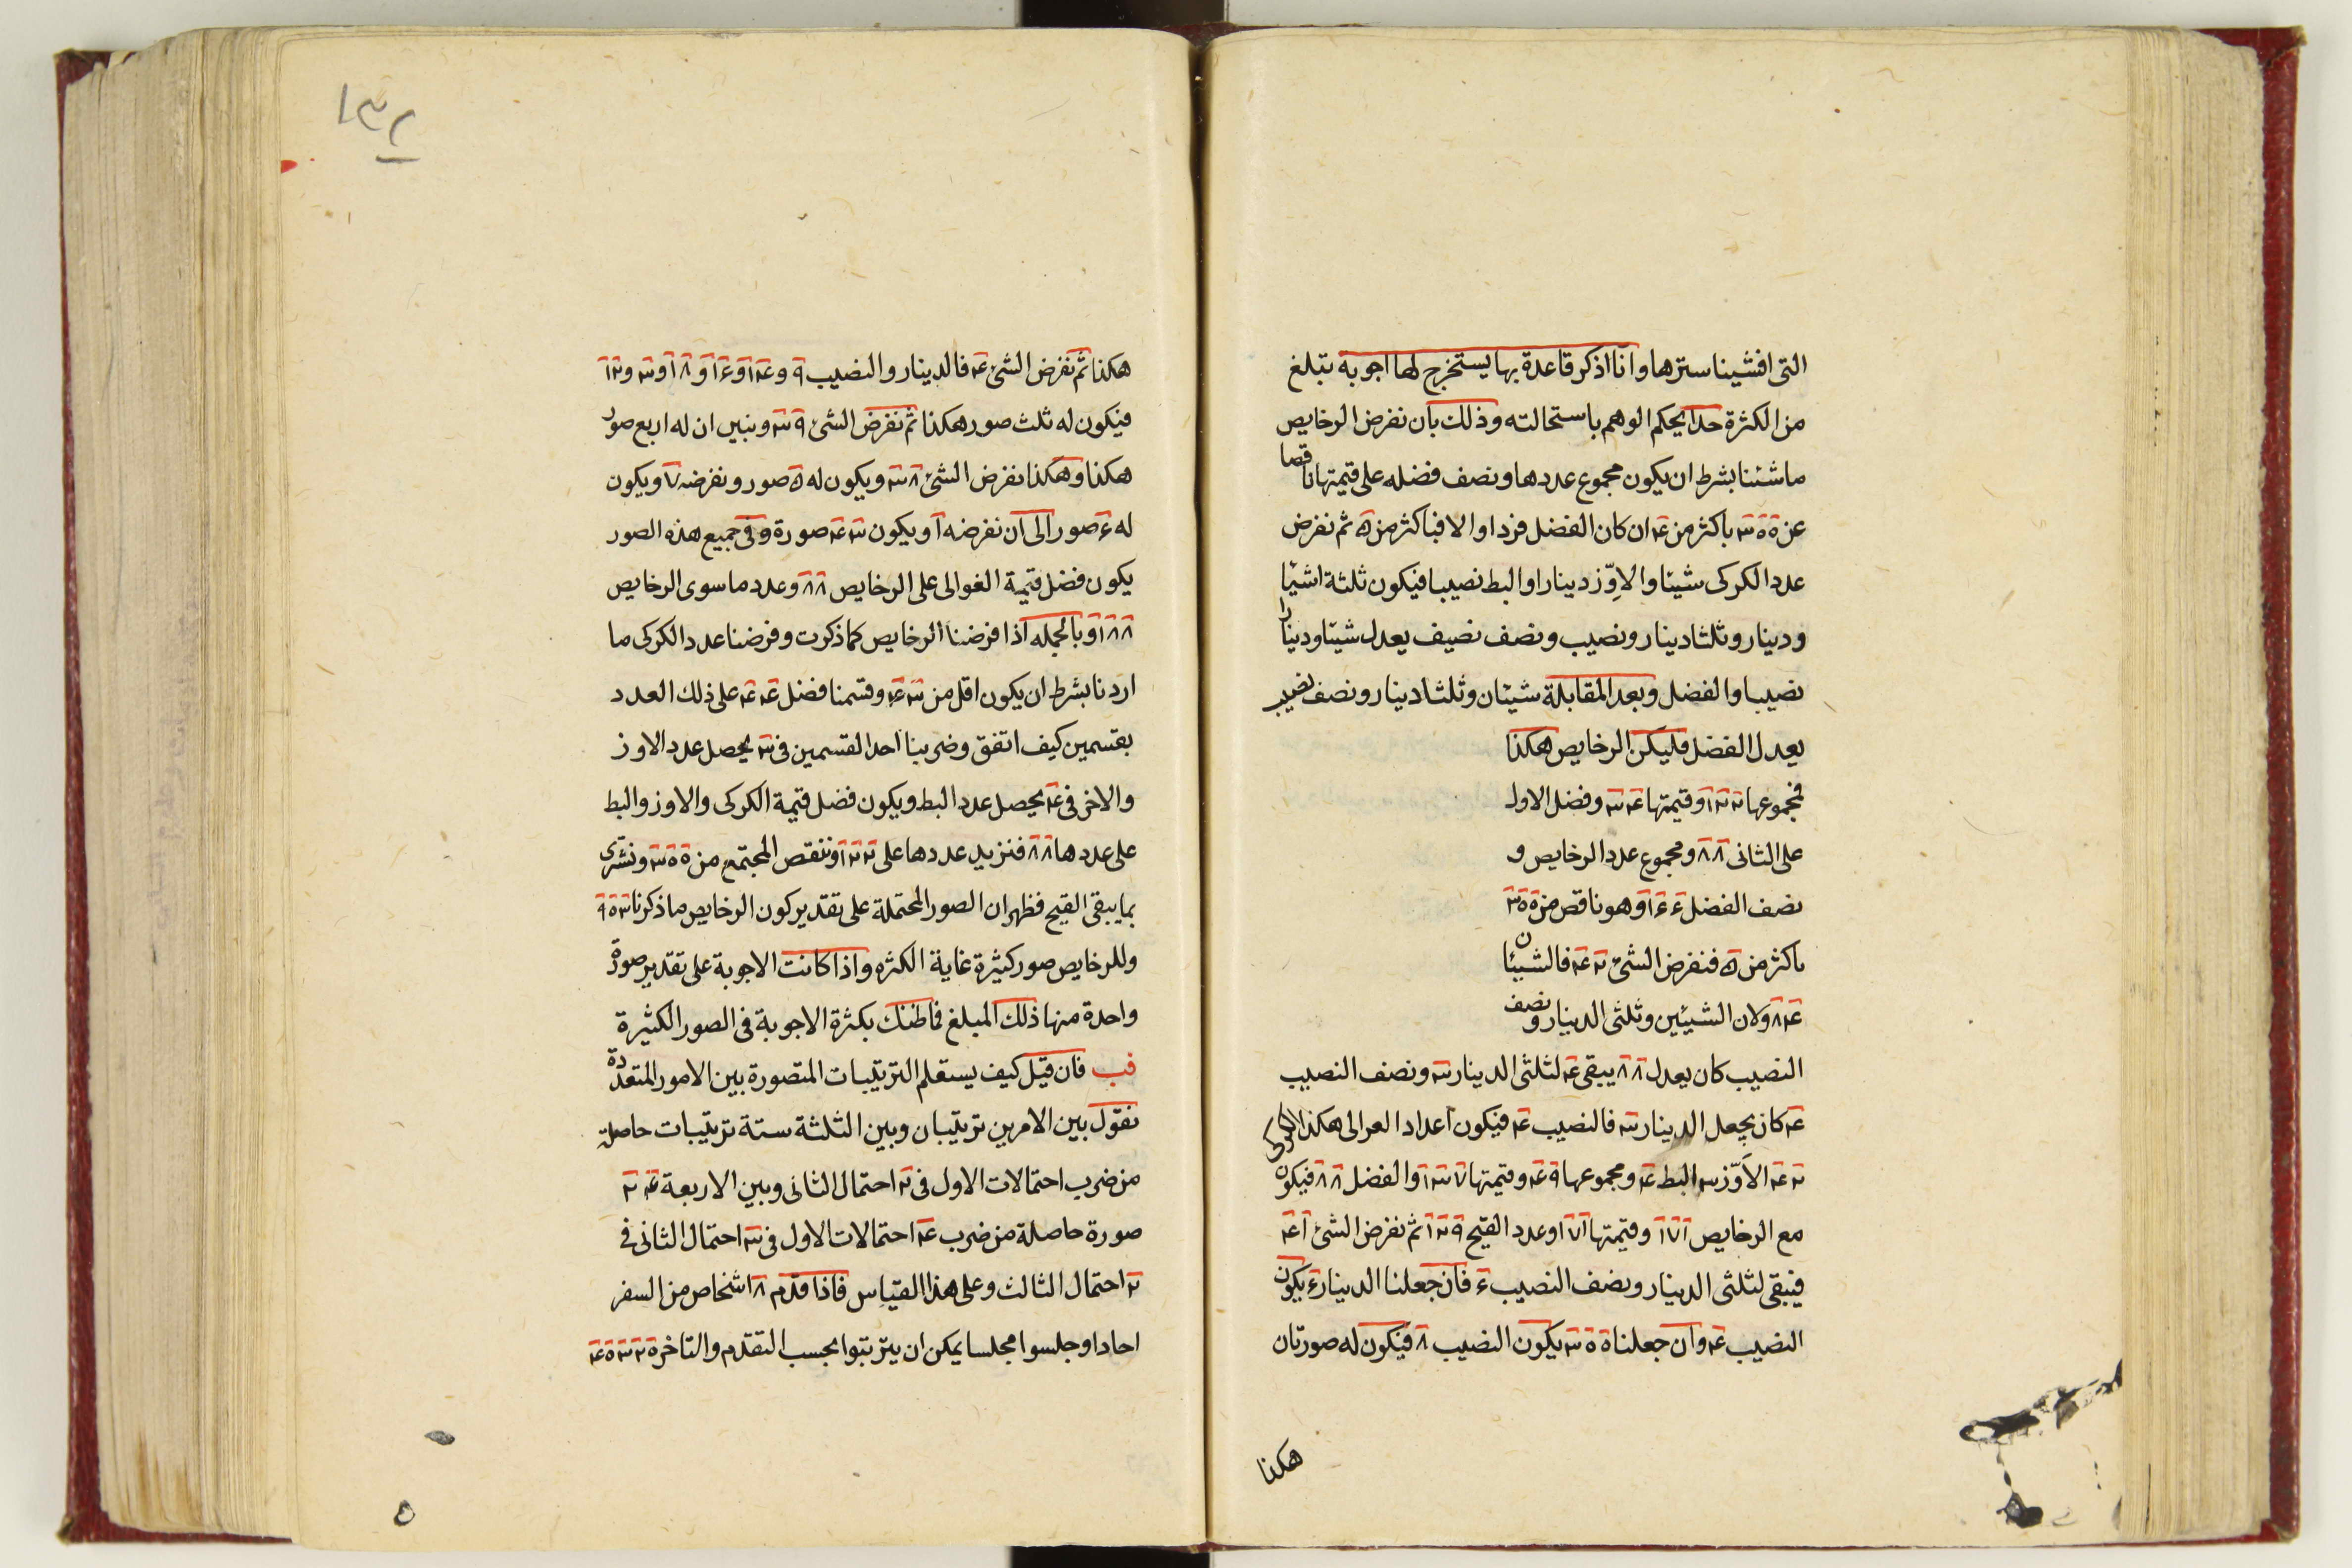 التى افشينا سترها وانا اذكر قاعدة بها يستخرج لها اجوبة تبلغ
من الكثرة حدا يحكم الوهم باستحالته وذلك بان نفرض الرخايص
ما شئنا بشرط ان يكون مجموع عددها ونصف فضله على قيمتها ناقصا
عن ۳۵۵ باكثر من ۴ ان كان الفضل فردا والا فباكثر من ۵ ثم نفرض
عدد الكركى شيئا والاوّز دينارا والبط نصيبا فيكون ثلثة اشيا
ودينار وثلثا دينار ونصيب ونصف نصيف يعدل شيئا ودينارا
نصيبا والفضل وبعد المقابلة شيئان وثلثا دينار ونصف نصيب
يعدل الفضل فليكن الرخايص هكذا
فمجموعها ۱۲۲ وقيمتها ۳۴ وفضل الاول
على الثانى ۸۸ ومجموع عدد الرخايص و
نصف الفضل ۱۶۶ وهو ناقص من ۳۵۵
باكثر من ۵ فنفرض الشئ ۴۲ فالشيئان
۸۴ ولان الشيئين وثلثى الدينار ونصف
النصيب كان يعدل ۸۸ يبقى ۴ لثلثى الدينار ونصف النصيب
۴ كان يجعل الدينار ۳ فالنصيب ۴ فيكون اعداد العوالى هكذا الكركى
۴۲ الاَوّز ۳ البط ۴ ومجموعها ۴۹ وقيمتها ۱۳۷ والفضل ۸۸ فيكون
مع الرخايص ۱۷۱ وقيمتها ۱۷۱ وعدد القبح ۱۲۹ ثم نفرض الشئ ۴۱
فيبقى لثلثى الدينار ونصف النصيب ۶ فان جعلنا الدينار ۶ يكون
النصيب ۴ وان جعلناه ۳ يكون النصيب ۸ فيكون له صورتان
هكذا
۱۳۲
هكذا ثم نفرض الشئ ۴۰ فالدينار والنصيب ۹ و ۴ او ۶ و ۸ او ۳ و ۱۲
فيكون له ثلث صور هكذا ثم نفرض الشئ ۳۹ ونبين ان له اربع صور
هكذا وهكذا نفرض الشئ ۳۸ ويكون له ۵ صور ونفرضه ۳۷ ويكون
له ۶ صور الى ان نفرضه ۱ ويكون ۴۳ صورة وفى جميع هذه الصور
يكون فضل قيمة الغوالى على الرخايص ۸۸ وعدد ما سوى الرخايص
۱۸۸ وبالجمله اذا فرضنا الرخايص كما ذكرت وفرضنا عدد الكركى ما
اردنا بشرط ان يكون اقل من ۴۳ وقسمنا فضل ۴۴ على ذلك العدد
بقسمين كيف اتفق وضربنا احد القسمين فى ۳ يحصل عدد الاوز
والاخر فى ۴ يحصل عدد البط ويكون فضل قيمة الكركى والاوز والبط
على عددها ۸۸ فنزيد عددها على ۱۲۲ وننقص المجتمع من ۳۵۵ ونشترى
بما يبقى القبح فظهر ان الصور المحتملة على تقدير كون الرخايص ما ذكرنا ۹۵۳
وللرخايص صور كثيرة غاية الكثره واذا كانت الاجوبة على تقدير صورة
واحدة منها ذلك المبلغ فما ظنك بكثرة الاجوبة فى الصور الكثيرة
فب فان قيل كيف يستعلم الترتيبات المتصورة بين الامور المتعددة
نقول بين الامرين ترتيبان وبين الثلثة ستة ترتيبات حاصلة
من ضرب احتمالات الاول فى ۲ احتمال الثانى وبين الاربعة ۲۴
صورة حاصلة من ضرب ۴ احتمالات الاول فى ۳ احتمال الثانى فى
۲ احتمال الثالث وعلى هذا القياس فاذا قدم ۸ اشخاص من السفر
احادا وجلسوا مجلسا يمكن ان يترتبوا بحسب التقدم والتاخر